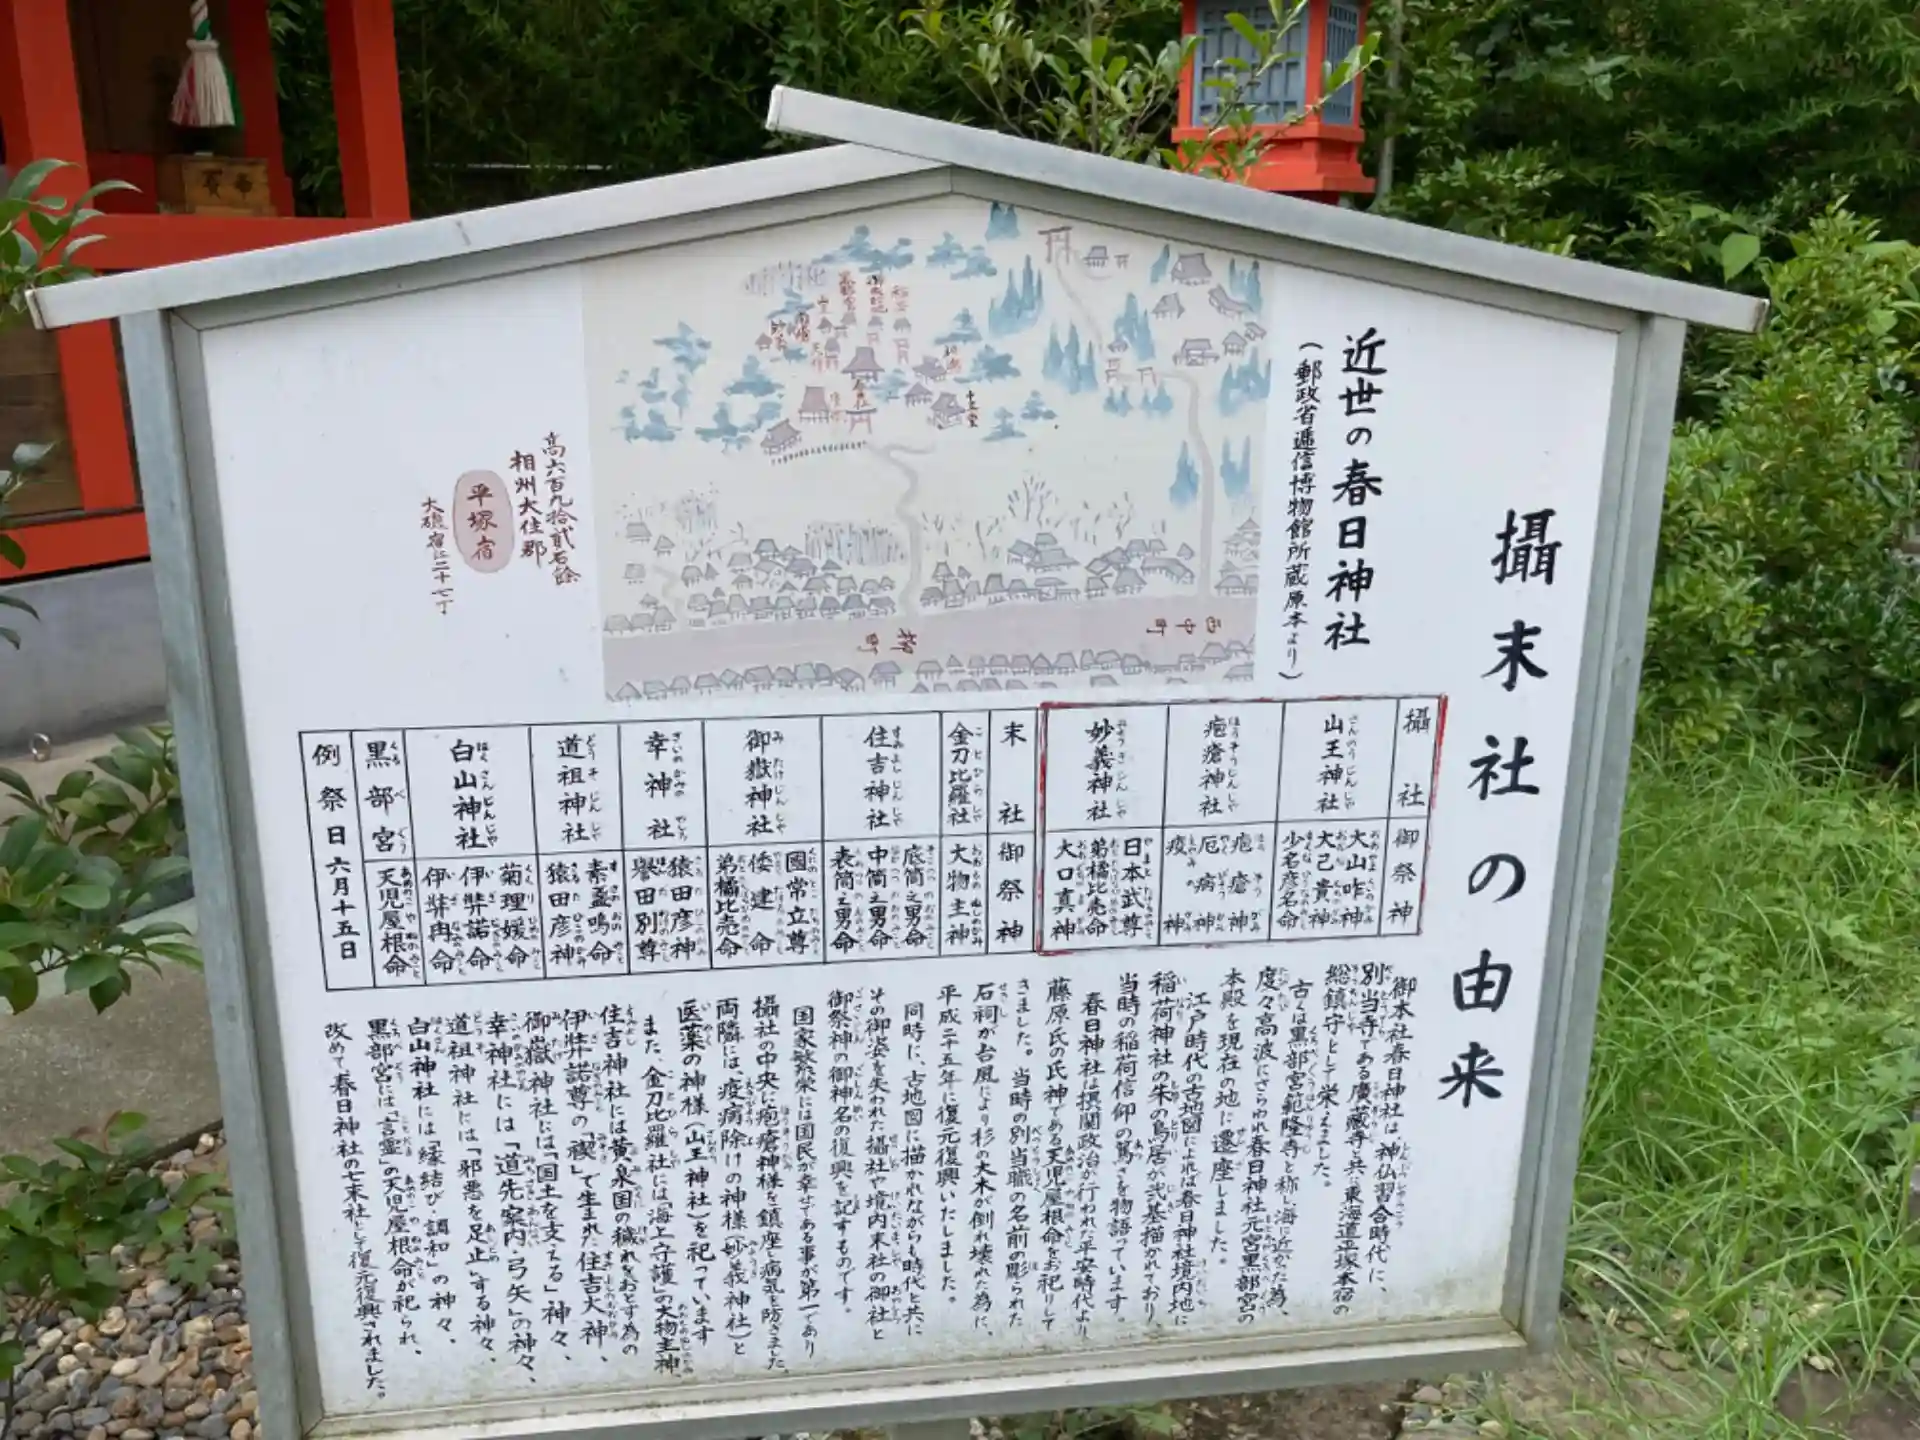 攝末社の由来
近世の春日神社
（郵政省逓信博物館所蔵原本より）
高六百九拾貳石餘
相州大住郡
平塚宿
大磯宿江二十七丁
攝社
御祭神
山王神社
大山咋神
大己貴神
少名彦名命
疱瘡神社
疱瘡神
厄病神
疫神
妙義神社
日本武尊
弟橘比売命
大口真神
末社
御祭神
金刀比羅社
大物主神
住吉神社
底筒之男命
中筒之男命
表筒之男命
御嶽神社
國常立尊
倭建命
弟橘比売命
幸神社
猿田彦神
譽田別尊
道祖神社
素盞嗚命
猿田彦神
白山神社
菊理媛命
伊弉諾命
伊弉冉命
黒部宮
天児屋根命
例祭日六月十五日
御本社春日神社は神仏習合時代に、
別当寺である廣蔵寺と共に東海道平塚本宿の
総鎮守として栄えました。
古くは黒部宮範隆寺と称し海に近かった為、
度々高波にさらわれ春日神社元宮黒部宮の
本殿を現在の地に遷座しました。
江戸時代の古地図によれば春日神社境内地に
稲荷神社の朱の鳥居が弐基描かれており、
当時の稲荷信仰の篤さを物語っています。
春日神社は摂関政治が行われた平安時代より
藤原氏の氏神である天児屋根命をお祀りして
きました。当時の別当職の名前の彫られた
石祠が台風により杉の大木が倒れ壊れた為に、
平成二十五年に復元復興いたしました。
同時に、古地図に描かれながらも時代と共に
その御姿を失われた攝社や境内末社の御社と
御祭神の御神名の復興を記すものです。
国家繁栄には国民が幸せである事が第一であり
攝社の中央に疱瘡神様を鎮座し病気を防ぎました。
両隣には、疫病除けの神様（妙義神社）と
医薬の神様（山王神社）を祀っています
また、金刀比羅社には「海上守護」の大物主神、
住吉神社には黄泉国の穢れをおとす為の
伊弉諾尊の「禊」で生まれた住吉大神、
御嶽神社には「国土を支える」神々、
幸神社には「道先案内・弓矢」の神々、
道祖神社には「邪悪を足止」する神々、
白山神社には「縁結び・調和」の神々、
黒部宮には「言霊」の天児屋根命が祀られ、
改めて春日神社の七末社として復元復興されました。